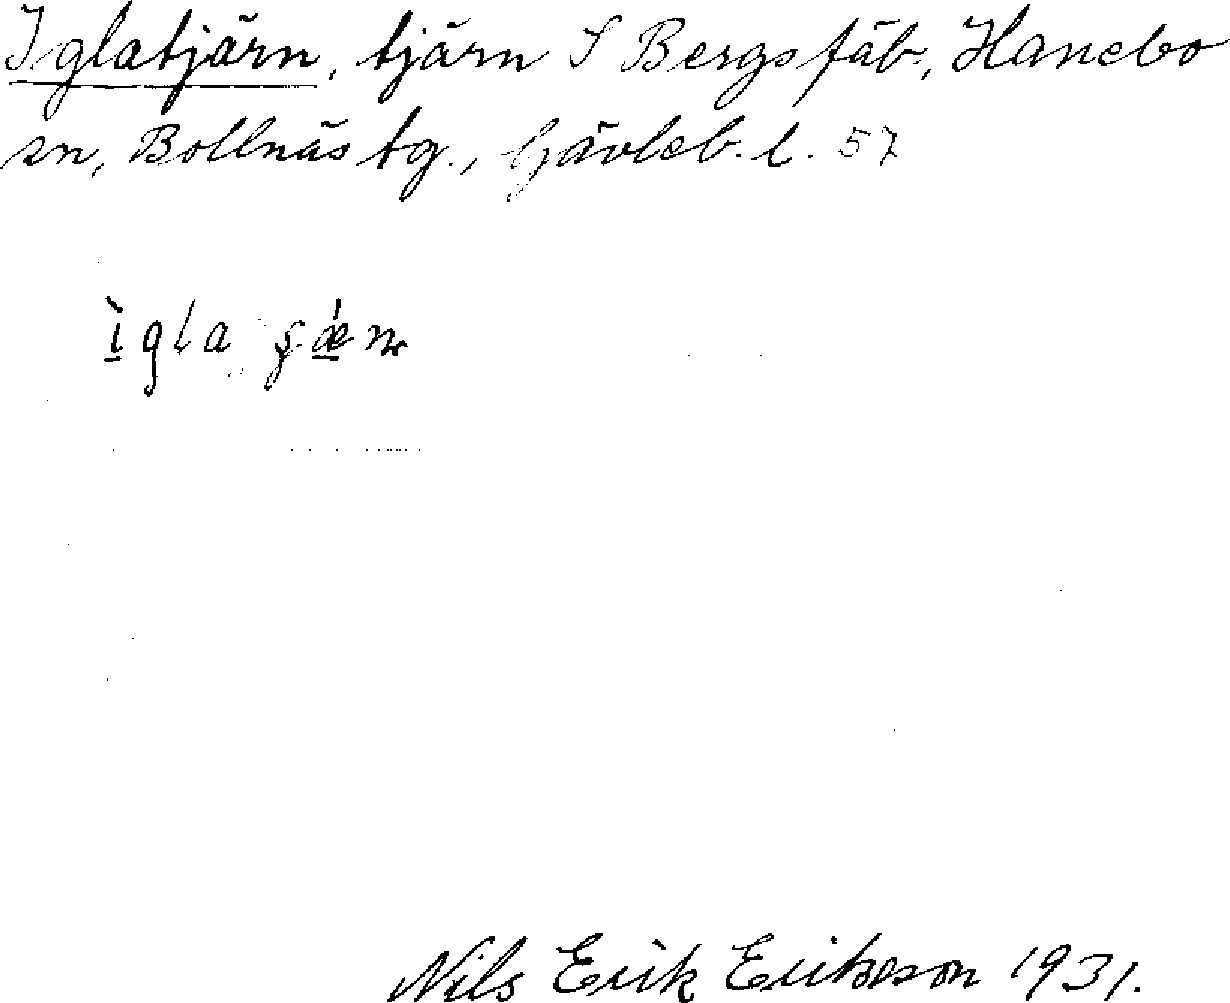 Iglatjärn, tjärn S Bergsfäb., Hanebo
sn, Bollnäs tg., Gävleb. l. 57
ìgla
Nils Erik Erikson 1931.